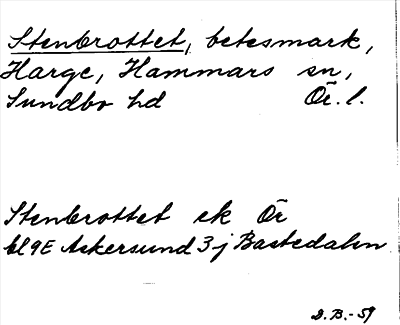 Stenbrottet, betesmark,
Harge, Hammars sn,
Sundbo hd Ör. l.
Stenbrottet ek Ör
bl 9E Askersund 3 j Bastedalen
D. B. - 59